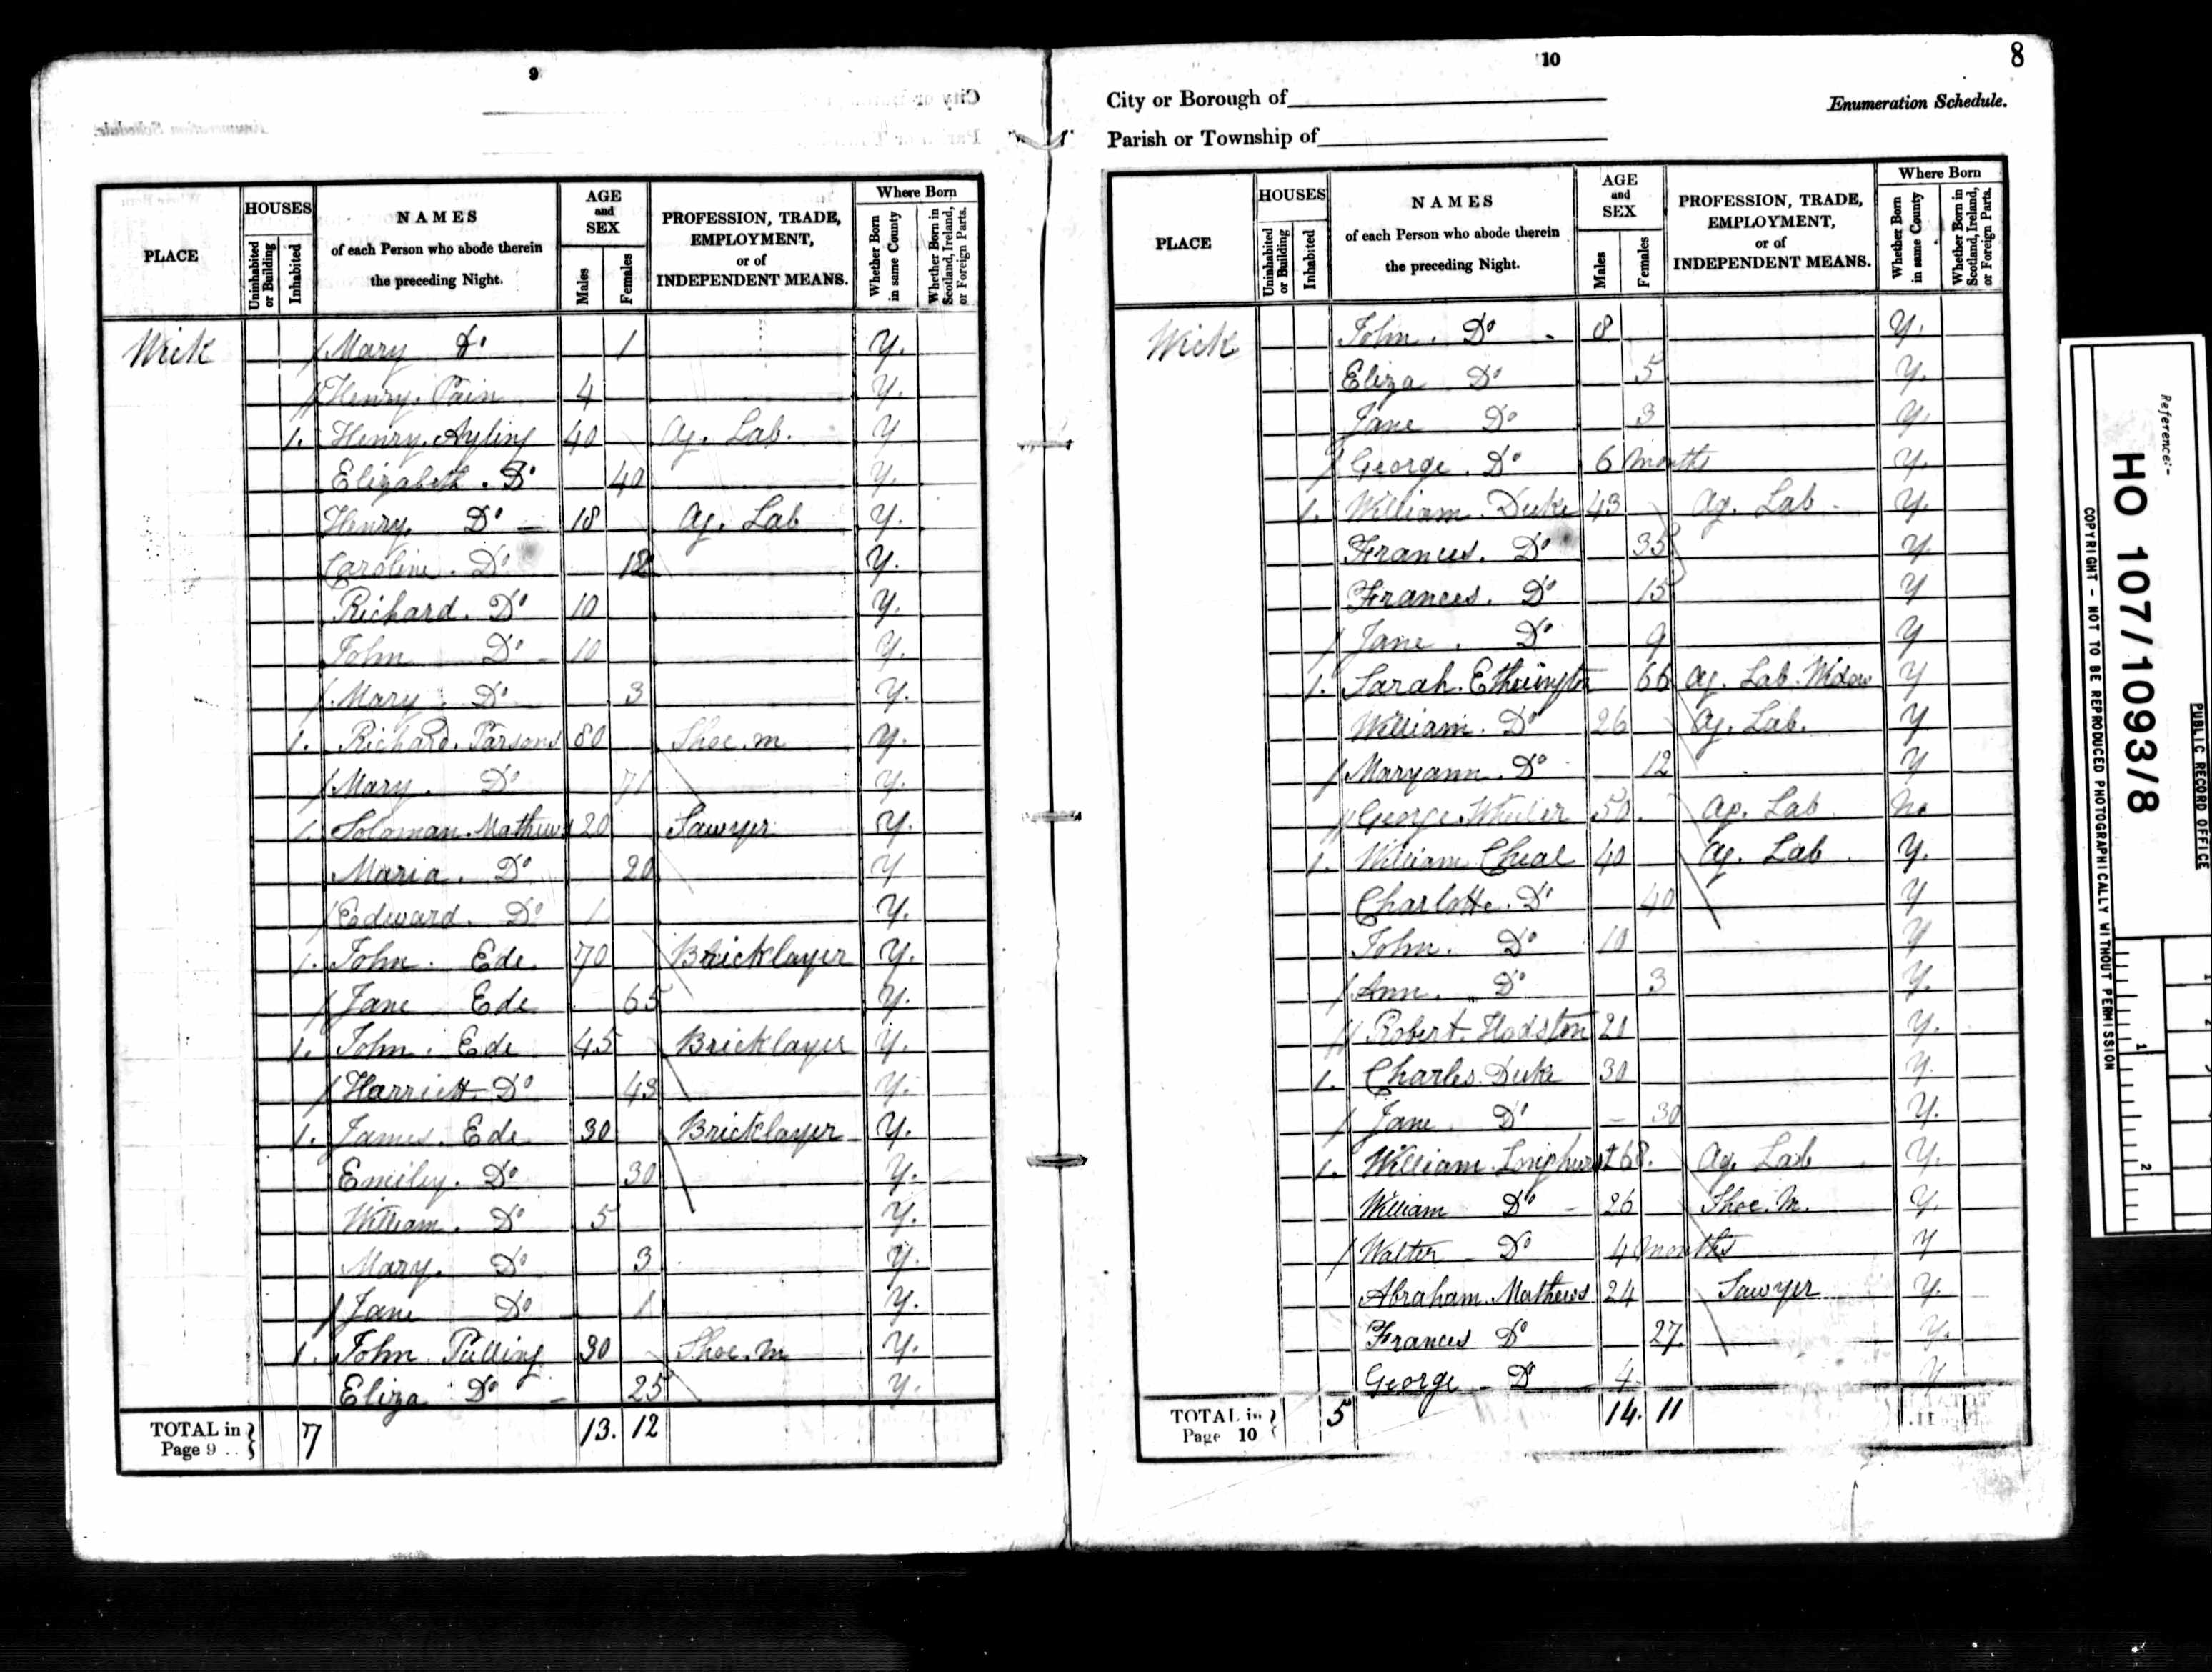 9
PLACE
HOUSES
Uninhabited or Building
Inhabited
NAMES
of each Person who abode therein
the preceding Night.
AGE and SEX
Males
Females
PROFESSION, TRADE, EMPLOYMENT, or of INDEPENDENT MEANS.
Where Born
Whether Born in same County
Whether Born in Scotland, Ireland, or Foreign Parts.
Wick / Mary Do 1 Y.
// Henry Pain 4 Y.
1. Henry Ayling 40 Ag. Lab. Y
Elizabeth Do 40 Y.
Henry Do 18 Ag. Lab Y.
Caroline Do 12 Y.
Richard Do 10 Y.
John Do 10 Y.
/ Mary Do 3 Y.
1. Richard Parsons 80 Shoe. m Y.
/ Mary Do 71 Y.
1. Soloman Mathews 20 Sawyer Y.
Maria Do 20 Y
/ Edward Do 1 Y.
1. John Ede 70 Bricklayer Y.
/ Jane Ede 65 Y.
1. John Ede 45 Bricklayer Y.
/ Harriett Do 43 Y.
1. James Ede 30 Bricklayer Y.
Emiley Do 30 Y.
William Do 5 Y.
Mary Do 3 Y.
/ Jane Do 1 Y.
1. John Pulling 30 Shoe. m Y.
Eliza Do 25 Y.
TOTAL in Page 9 7 13. 12
10
8
City or Borough of
Enumeration Schedule.
Parish or Township of
PLACE
HOUSES
Uninhabited or Building
Inhabited
NAMES
of each Person who abode therein
the preceding Night.
AGE and SEX
Males
Females
PROFESSION, TRADE, EMPLOYMENT, or of INDEPENDENT MEANS.
Where Born
Whether Born in same County
Whether Born in Scotland, Ireland, or Foreign Parts.
Wick John Do 8 Y.
Eliza Do 5 Y.
Jane Do 3 Y.
/ George Do 6 months Y.
1. William Duke 43 Ag. Lab Y.
Frances Do 35 Y.
Frances Do 15 Y
/ Jane Do 9 Y
1. Sarah Etherington 66 Ag. Lab. Widow Y
William Do 26 Ag. Lab. Y.
/ Maryann Do 12 Y
// George 50 Ag. Lab No
1. William Cheal 40 Ag. Lab Y.
Charlotte Do 40 Y
John Do 10 Y
/ Ann Do 3 Y.
// Robert 20 Y.
1. Charles Duke 30 Y.
/ Jane Do 30 Y.
1. William 68 Ag. Lab Y.
William Do 26 Shoe. M. Y.
/ Walter Do 4 months Y
Abraham Mathews 24 Sawyer Y.
Frances Do 27 Y.
George Do 4 Y
TOTAL in Page 10 5 14. 11
Reference:-
HO 107/1093/8
PUBLIC RECORD OFFICE
COPYRIGHT - NOT TO BE REPRODUCED PHOTOGRAPHICALLY WITHOUT PERMISSION
1
2